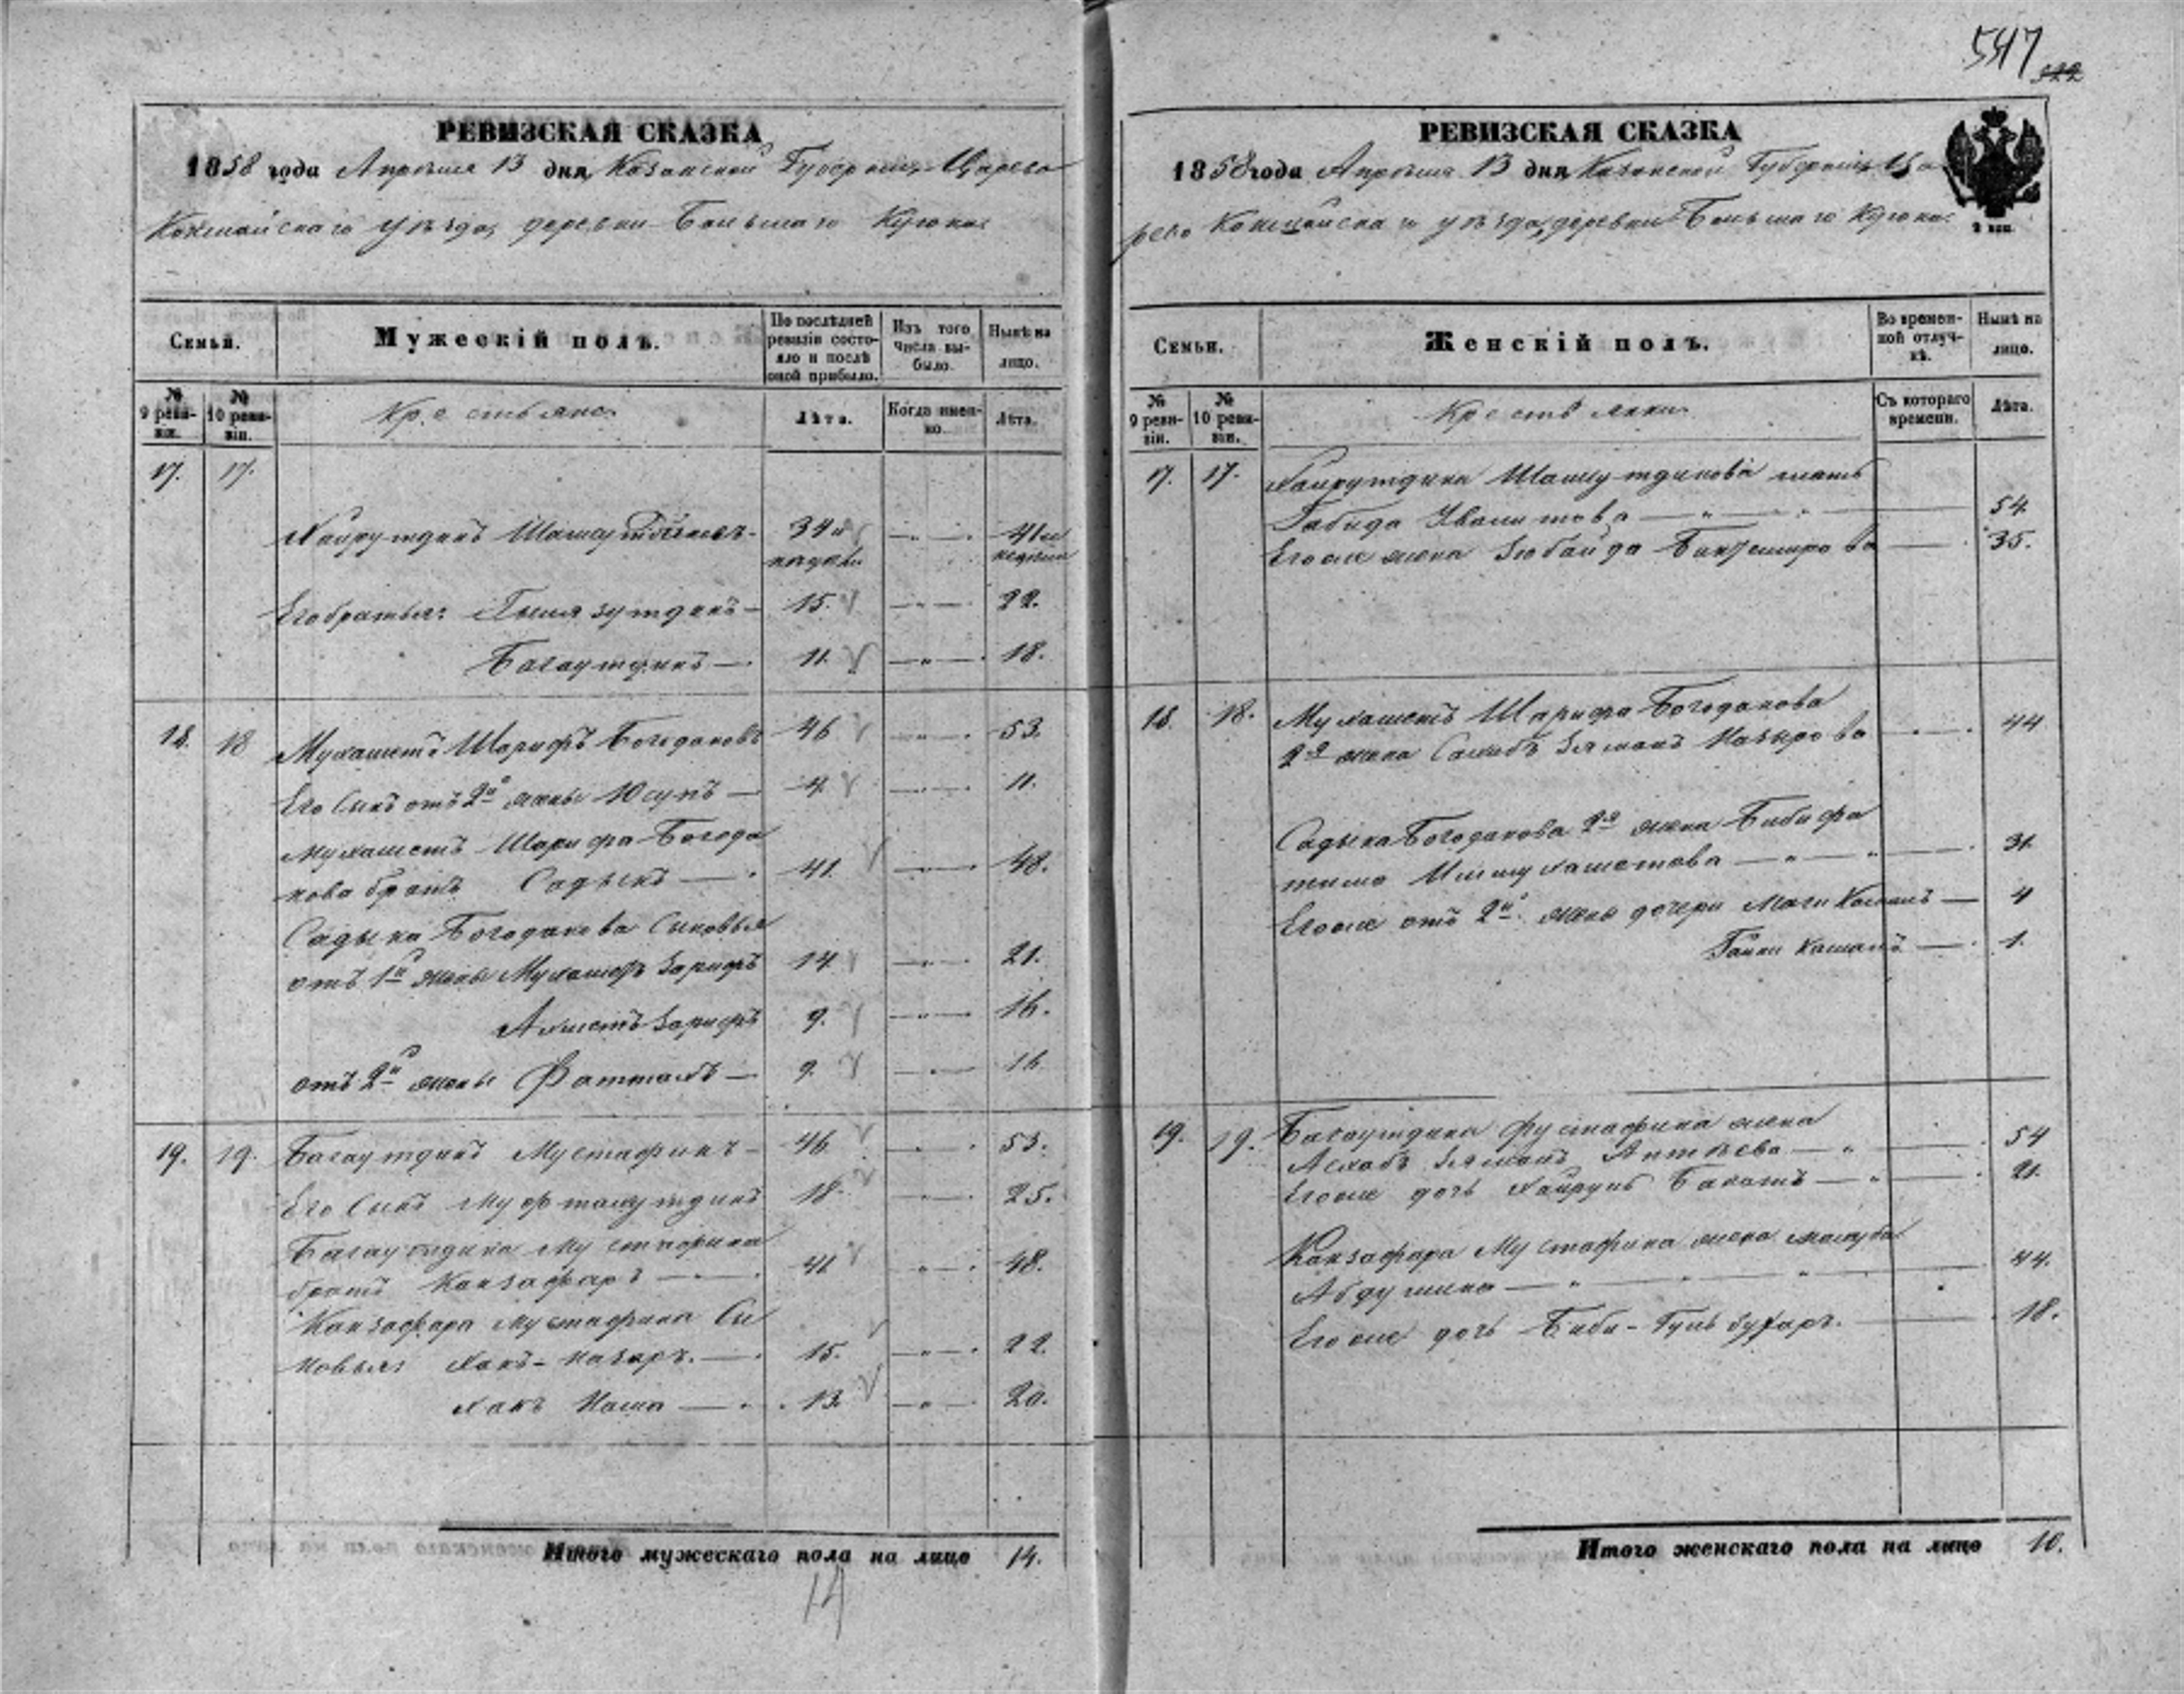 547
322
РЕВИЗСКАЯ СКАЗКА
1858 года Апреля 13 дня, Казанской Губернии, Царево
Кокшайскаго уѣзда, деревни Большаго Кугюна
Семьи.
Мужескій полъ.
По послѣдней ревизіи состояло и послѣ оной прибыло.
Изъ того числа выбыло.
Нынѣ на лицо.
№ 9 ревизіи.
№ 10 ревизіи.
Крестьяне
Лѣта.
Когда именно.
Лѣта.
17. 17.
Хайрутдинъ 34 и 41 и
недѣли недѣли
Его братья: 15. 22.
Багаутдинъ 11. 18.
18. 18 Мухаметъ Шарифъ Богодановъ 46 53.
Его сынъ отъ 2й жены Юсупъ 4. 11.
Мухаметъ Шарифа Богода
нова братъ Садыкъ 41. 48.
Садыка Богоданова сыновья
отъ 1й жены Мухаметъ Зарифъ 14 21.
Ахметъ Зарифъ 9. 16.
отъ 2й жены Фаттахъ 9. 16
19. 19. Багаутдинъ Мустафинъ 46 53.
Его сынъ Муфтахутдинъ 18 25.
Багаутдина Мустафина
братъ Канзафаръ 41 48.
Канзафара Мустафина Сы
новья: Хакъ-Назаръ. 15. 22.
Хакъ 13. 20.
Итого мужескаго пола на лицо 14.
14
РЕВИЗСКАЯ СКАЗКА
1858 года Апреля 13 дня, Казанской Губерніи, Ца
рево Кокшайскаго уѣзда, деревни Большаго Кугюна
2 коп.
Семьи.
Женскій полъ.
Во временной отлучкѣ.
Нынѣ на лицо.
№ 9 ревизіи.
№ 10 ревизіи.
Крестьянки
Съ котораго времени.
Лѣта.
17. 17. Хайрутдина мать
Габида 54
Его же жена Зюбайда 35.
18. 18. Мухаметъ Шарифа Богоданова
2я жена Сахибъ Зямалъ Назырова 44
Садыка Богоданова 2я жена Бибифа
тима Ишмухаметова 31.
Его же отъ 2й жены дочери 4
1.
19. 19. Багаутдина жена
54
Его же дочь 21.
Канзафара Мустафина жена
44.
Его же дочь Биби- 18.
Итого женскаго пола на лицо 10.